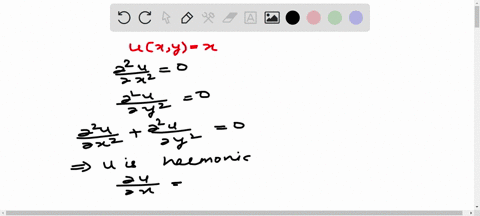 u(x,y)=x
∂²u/∂x² = 0
∂²u/∂y² = 0
∂²u/∂x² + ∂²u/∂y² = 0
⇒ u is harmonic
∂u/∂x =